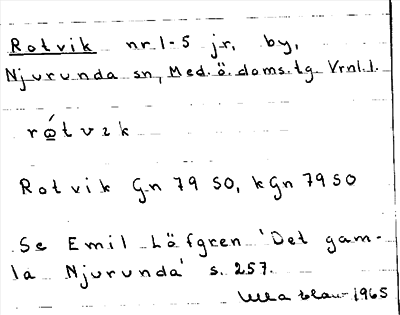 Rotvik nr. 1-5 jr, by,
Njurunda sn, Med. ö. doms. tg. Vrnl. l.
Rotvik Gn 79 50, kGn 79 50
Se Emil Löfgren 'Det gam-
la Njurunda' s. 257.
1965